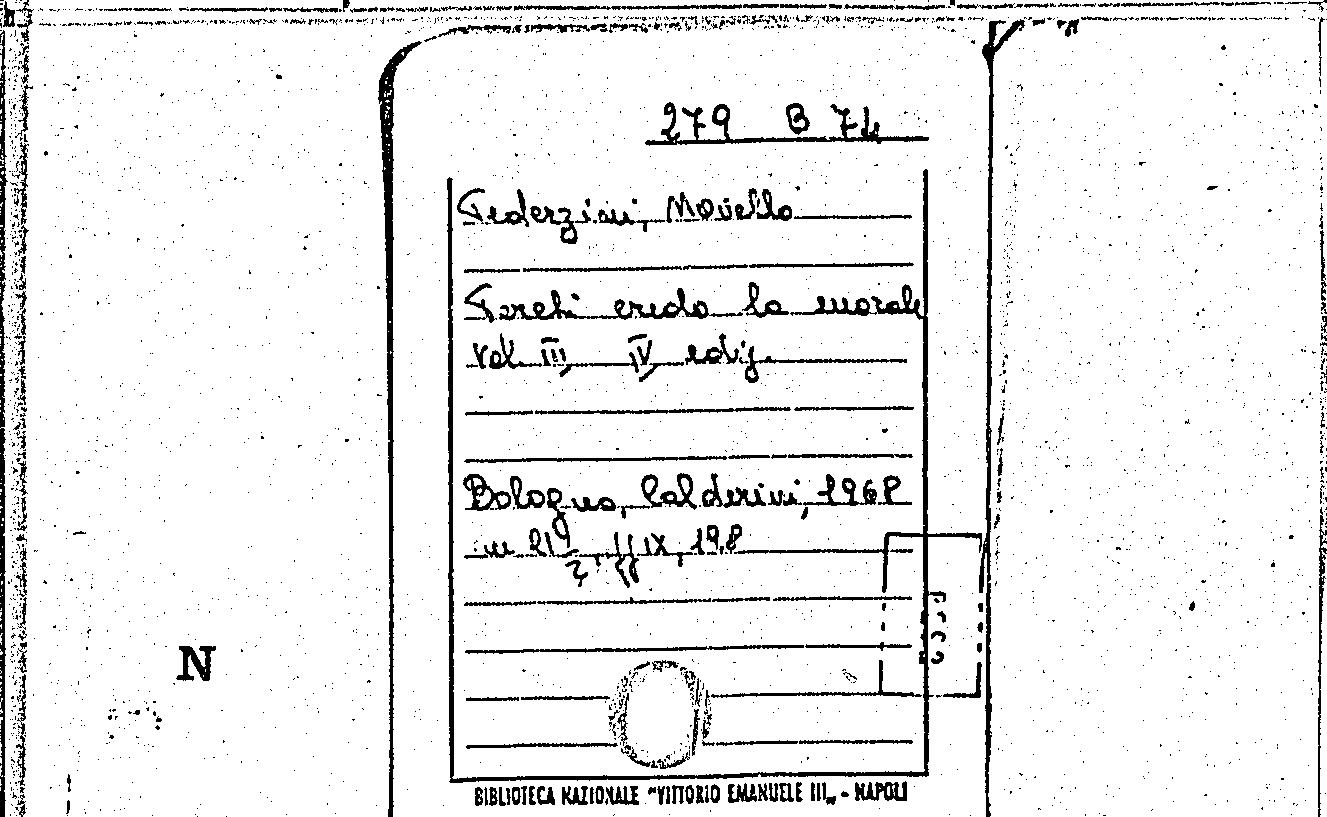 279 B 74
Federzini, Novello
Perchi credo la morale
vol. III, IV ediz.
Bologna, Calderini, 1968
in 21 1/2, pp IX, 198
N
BIBLIOTECA NAZIONALE "VITTORIO EMANUELE III„ - NAPOLI